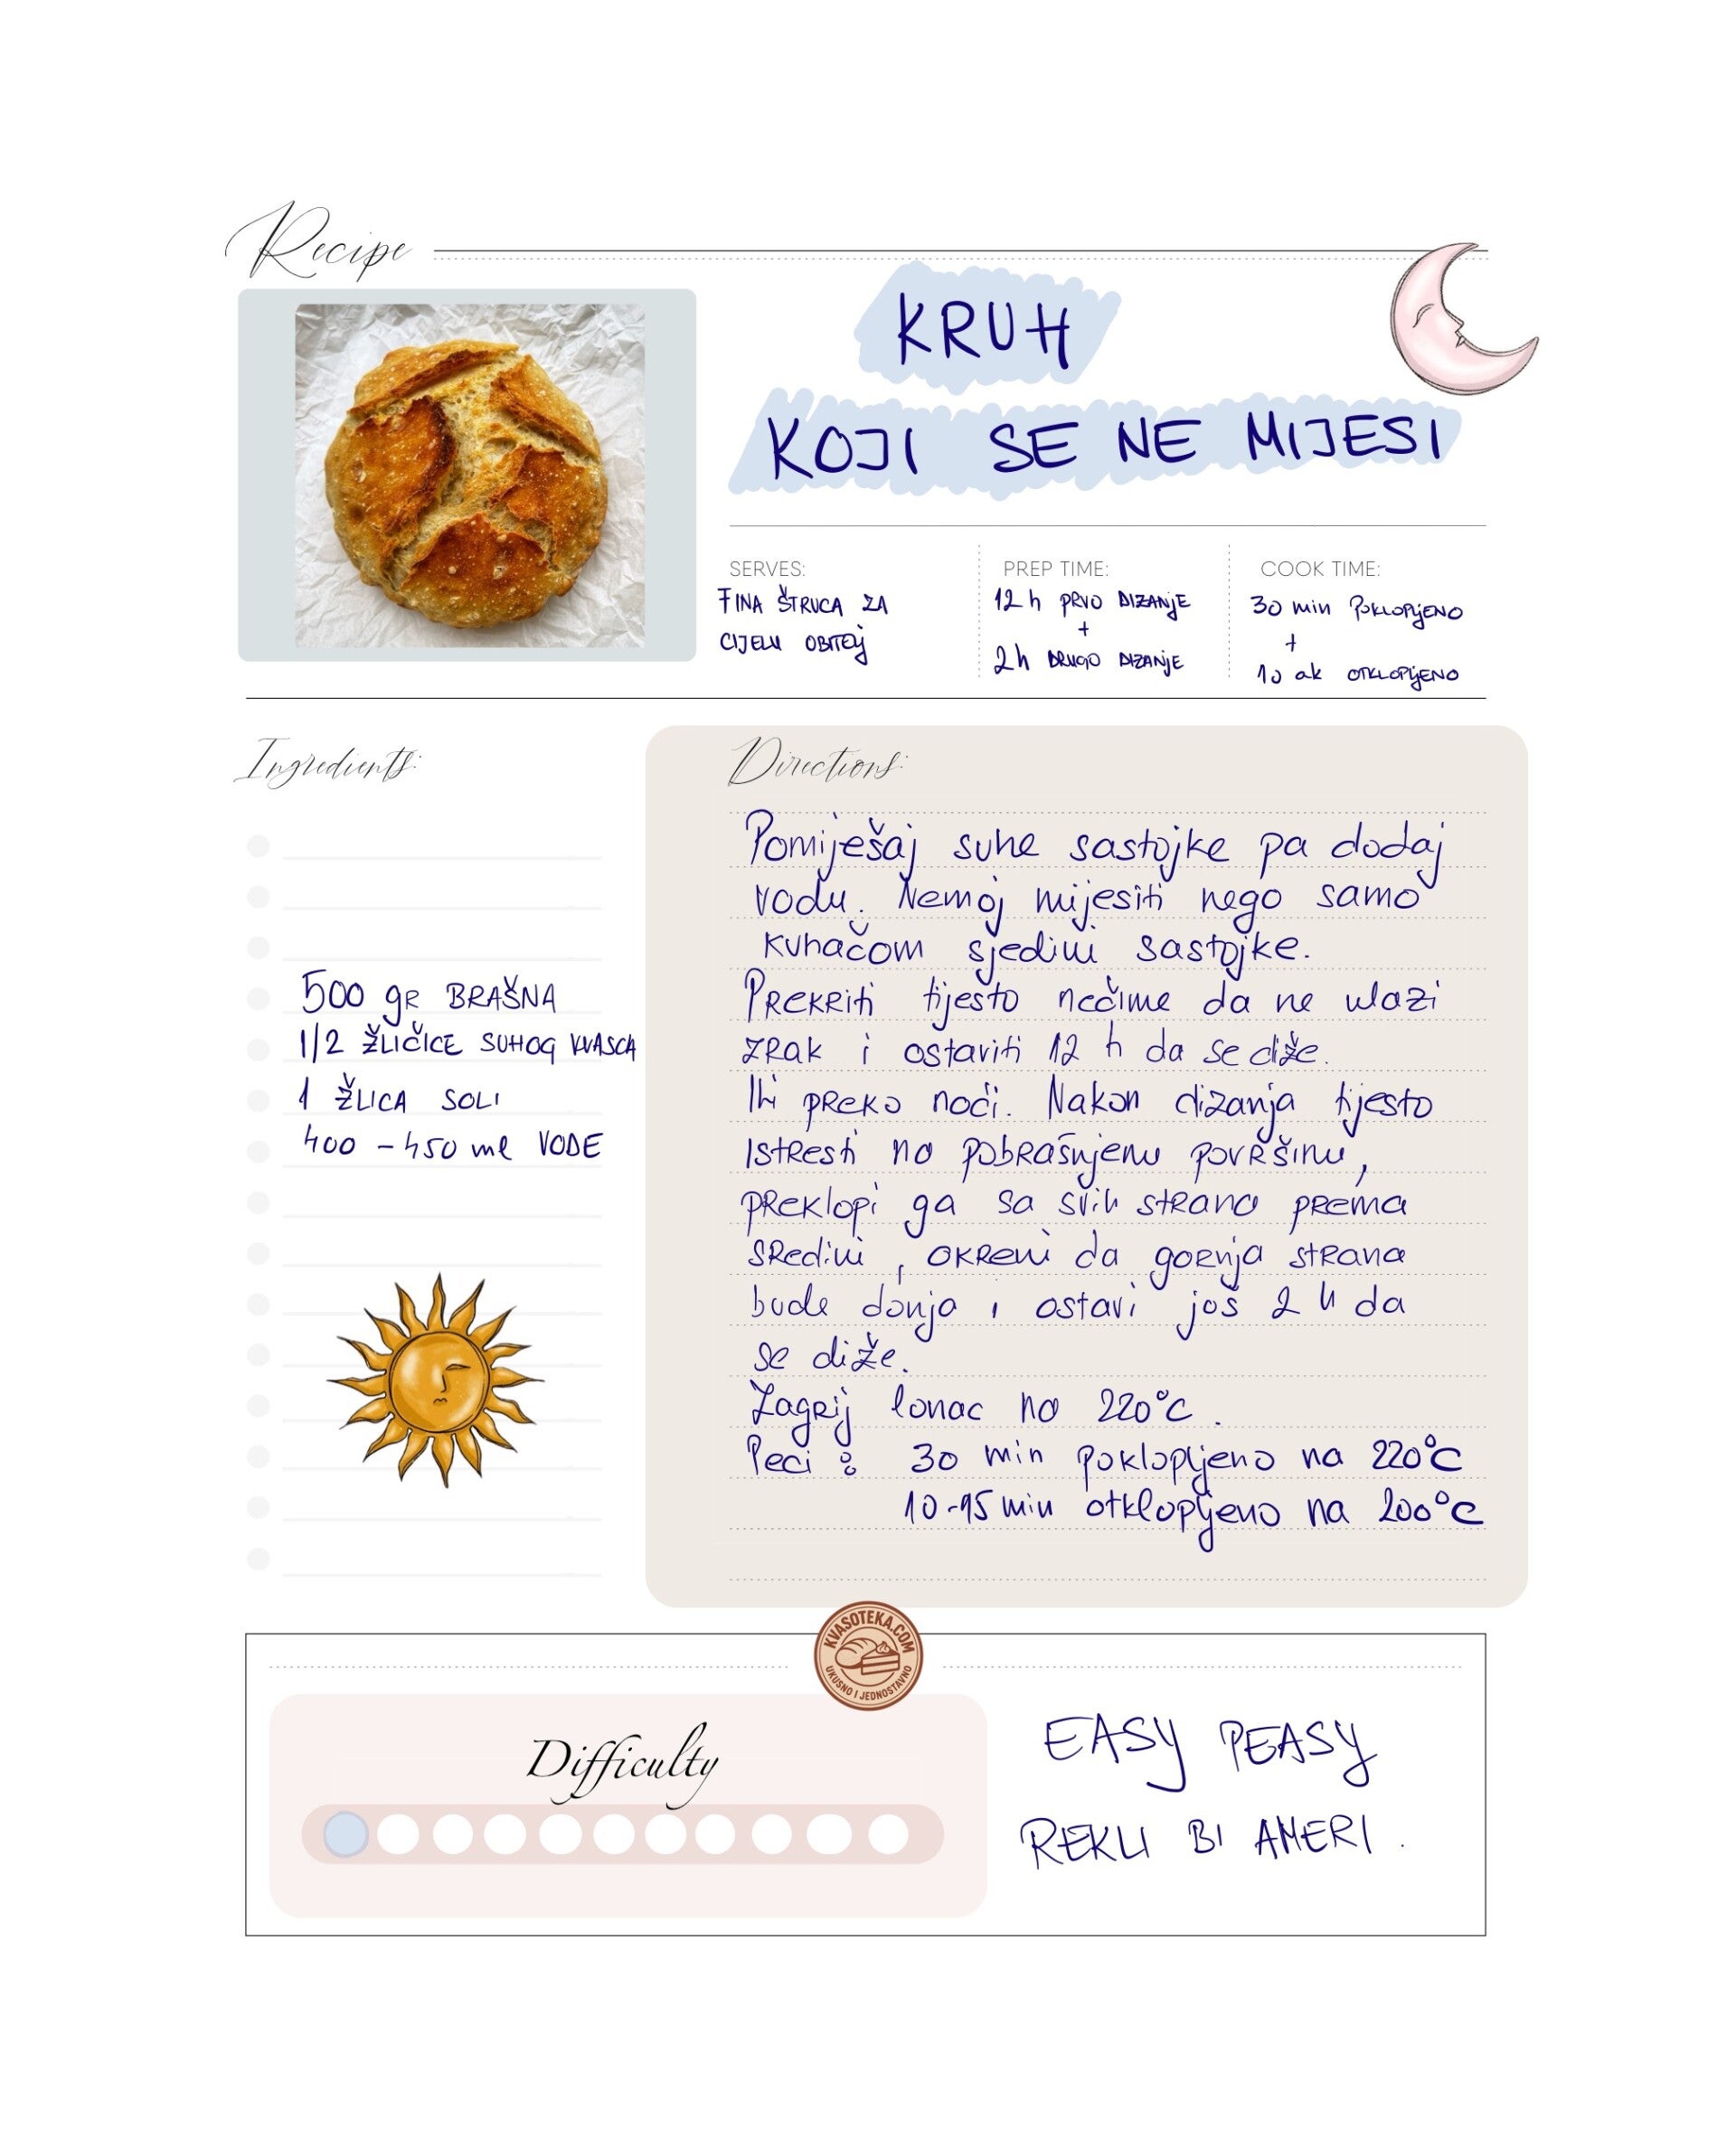 Recipe
KRUH
KOJI SE NE MIJESI
SERVES:
FINA ŠTRUCA ZA
CIJELU OBITELJ
PREP TIME:
12 h PRVO DIZANJE
+
2h DRUGO DIZANJE
COOK TIME:
30 min POKLOPLJENO
+
10 ak OTKLOPLJENO
Ingredients:
500 gR BRAŠNA
1/2 ŽLIČICE SUHOG KVASCA
1 ŽLICA SOLI
400 - 450 ml VODE
Directions:
Pomiješaj suhe sastojke pa dodaj
vodu. Nemoj mijesiti nego samo
kuhačom sjedini sastojke.
Prekriti tijesto nečime da ne ulazi
zrak i ostaviti 12 h da se diže.
Ili preko noći. Nakon dizanja tijesto
istresti na pobrašnjenu površinu,
preklopi ga sa svih strana prema
sredini, okreni da gornja strana
bude donja i ostavi još 2 h da
se diže.
Zagrij lonac na 220°C.
Peci: 30 min poklopljeno na 220°C
10-15 min otklopljeno na 200°C
KVASOTEKA.COM
UKUSNO I JEDNOSTAVNO
Difficulty
EASY PEASY
REKLI BI AMERI.